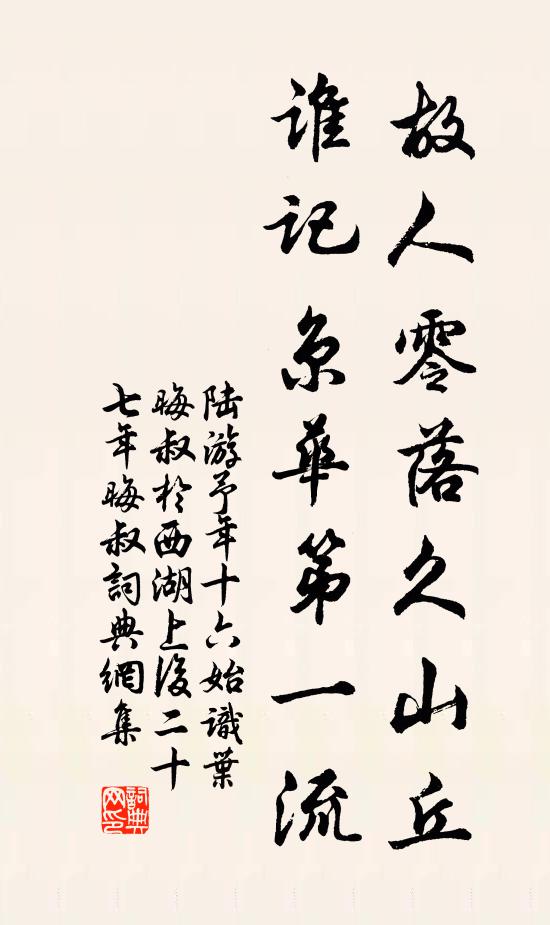 故人零落久山丘
谁记京華第一流
陆游予年十六始識葉
晦叔於西湖上後二十
七年晦叔詞典網集
詞典
网印